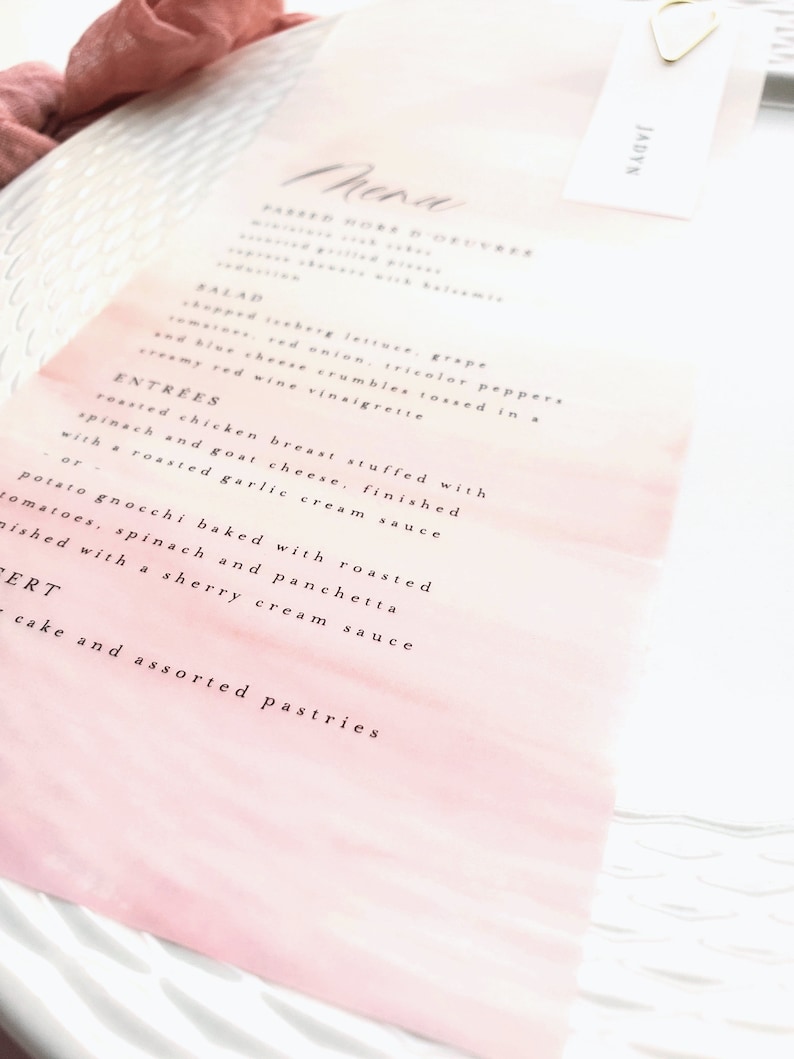 JADYN
Menu
PASSED HORS D'OEUVRES
miniature crab cakes
assorted grilled pizzas
caprese skewers with balsamic
reduction
SALAD
chopped iceberg lettuce, grape
tomatoes, red onion, tricolor peppers
and blue cheese crumbles tossed in a
creamy red wine vinaigrette
ENTRÉES
roasted chicken breast stuffed with
spinach and goat cheese, finished
with a roasted garlic cream sauce
- or -
potato gnocchi baked with roasted
tomatoes, spinach and panchetta
nished with a sherry cream sauce
SERT
cake and assorted pastries